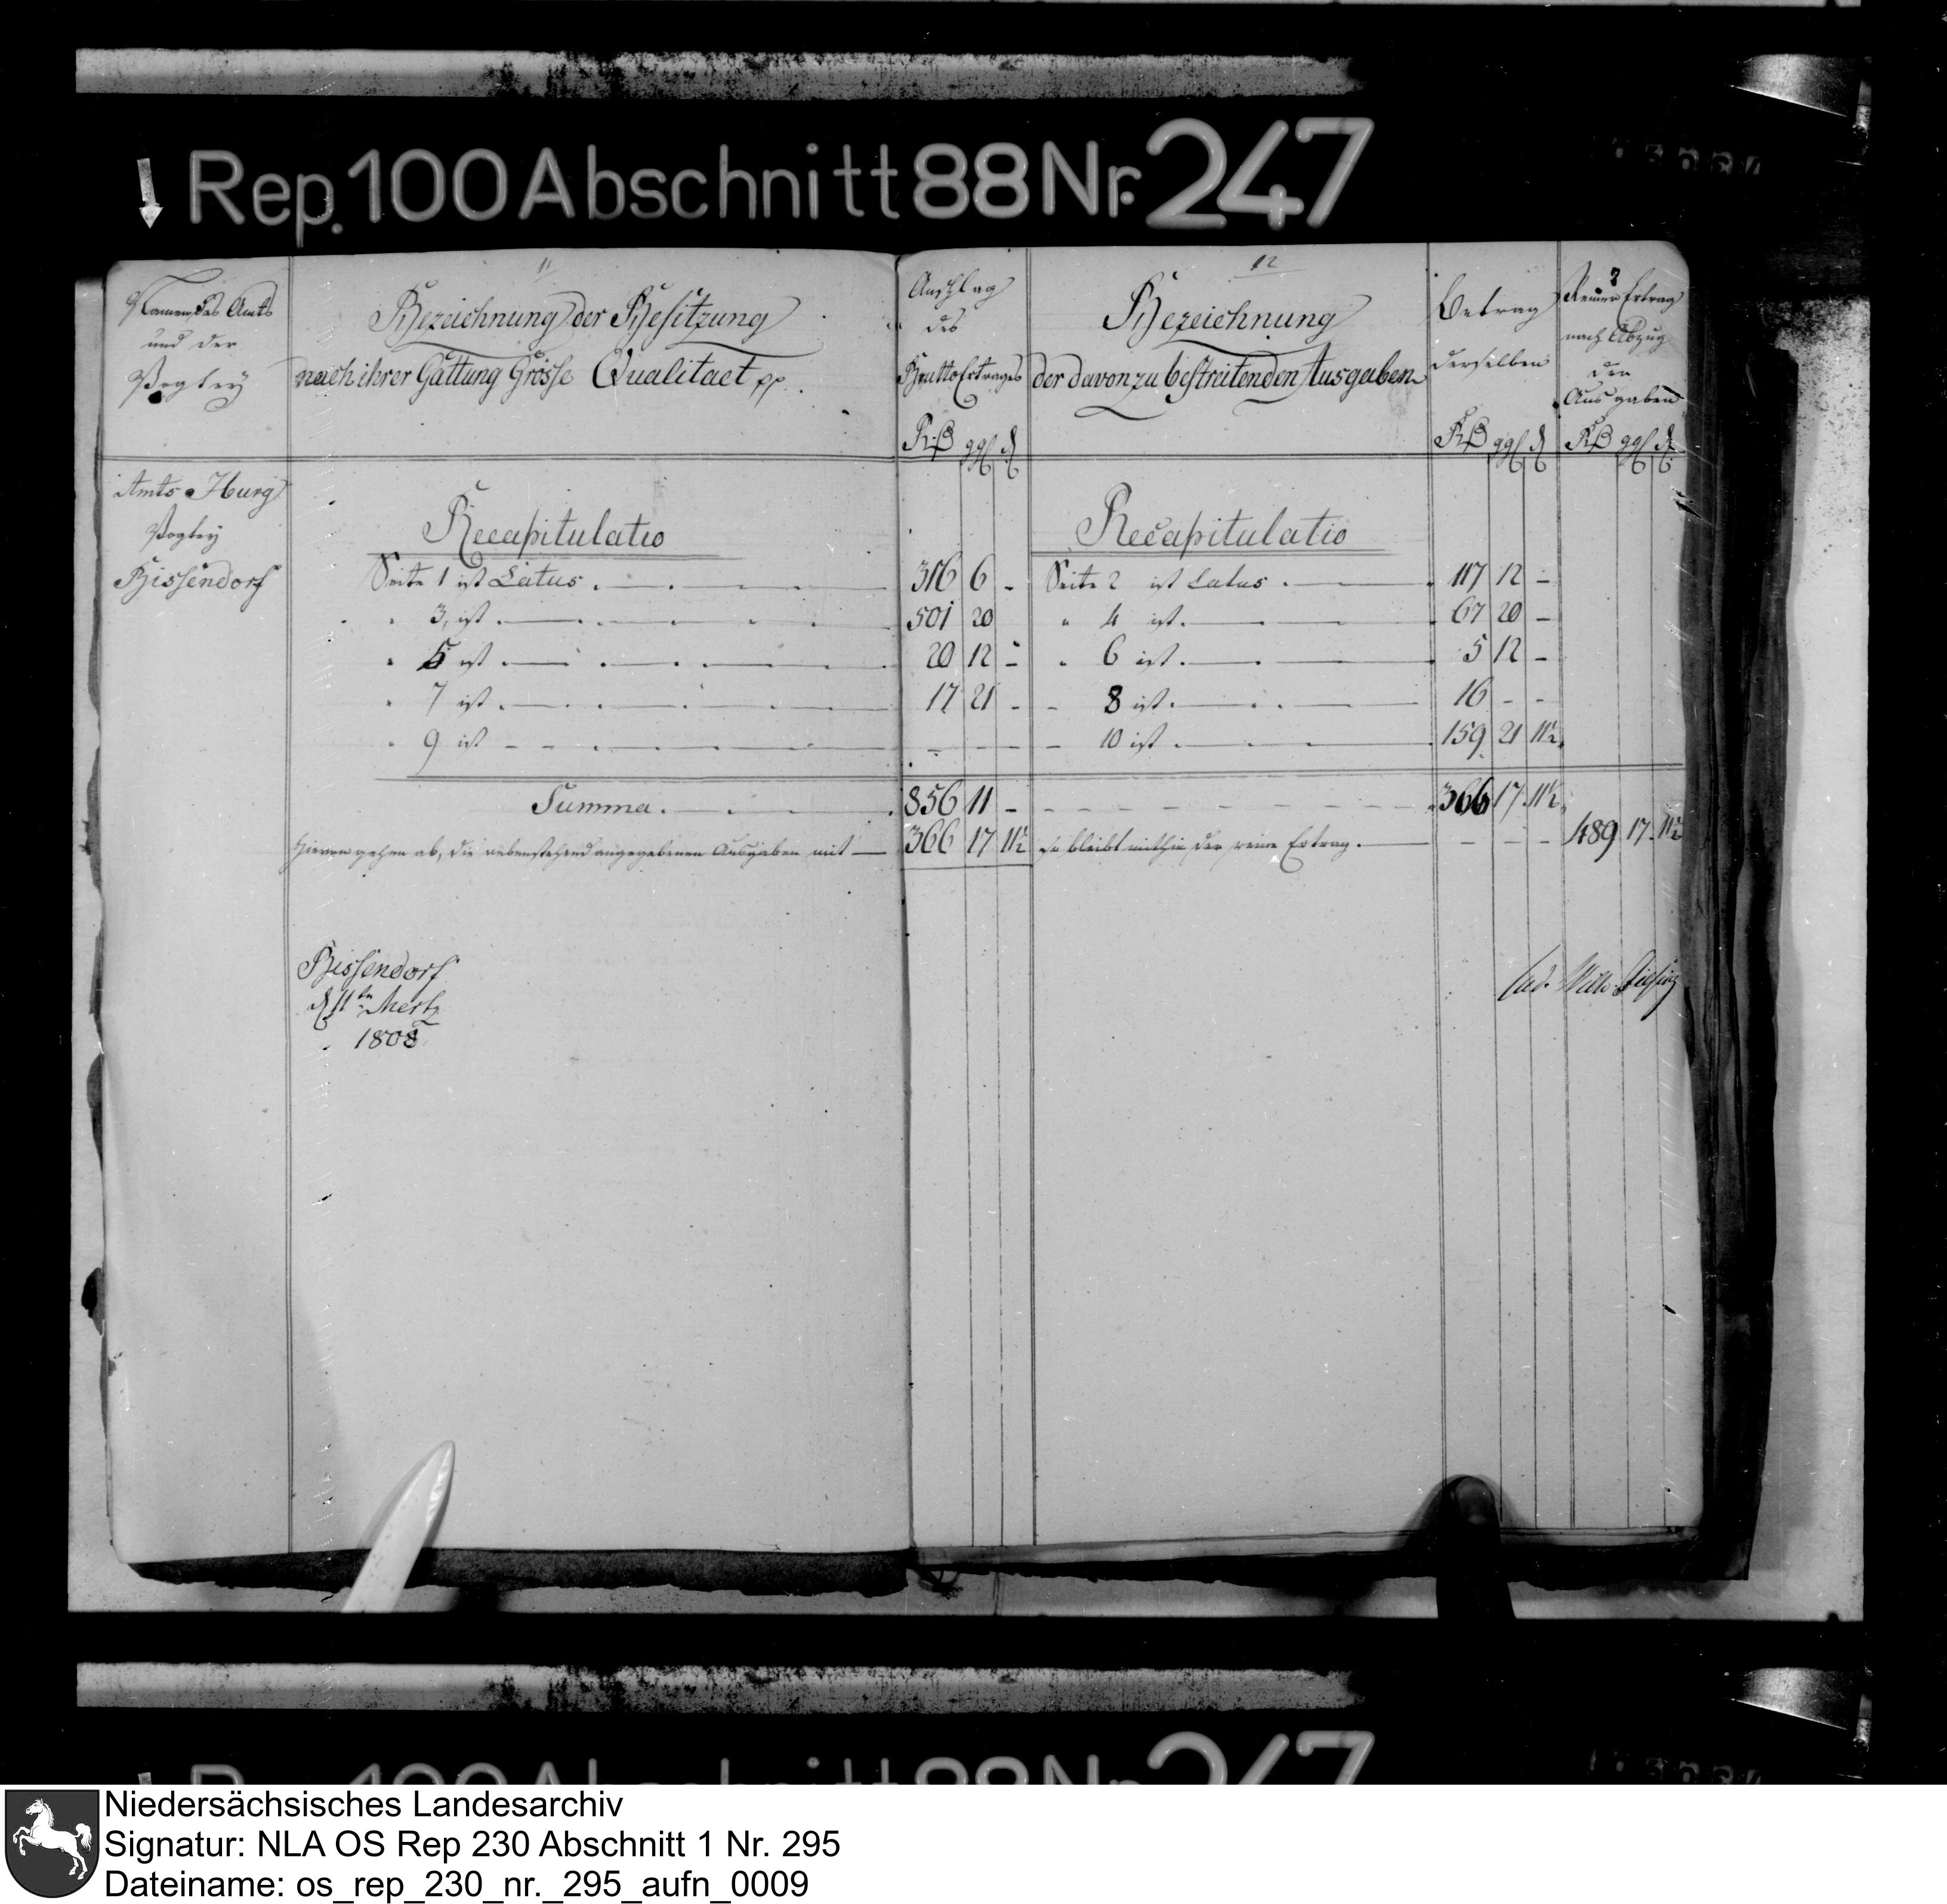 Rep. 100 Abschnitt 88 Nr. 247
11
12
Namen des Amts
und der
Vogtey
Bezeichnung der Besitzung
nach ihrer Gattung Grösse Qualitaet pp.
Anschlag
des
Brutto Ertrages
Bezeichnung
der davon zu bestreitenden Ausgaben
Betrag
derselben
Reiner Ertrag
nach Abzug
der
Ausgaben
Amts Iburg
Vogtey
Bissendorf
Recapitulatio
Recapitulatio
Seite 1 ist Latus 316 6 - Seite 2 ist Latus 117 12 -
" 3, ist 501 20 " 4 ist 67 20 -
" 5 ist 20 12 - " 6 ist 5 12 -
" 7 ist 17 21 - - 8 ist 16 - -
" 9 ist - - - - 10 ist 159 21 11½
Summa 856 11 - 366 17 11½
Hievon gehen ab, die nebenstehend angegebenen Ausgaben mit 366 17 11½ So bleibt mithin der reine Ertrag - - - 489 17 11½
Bissendorf
d 11tn Mertz
1808
Niedersächsisches Landesarchiv
Signatur: NLA OS Rep 230 Abschnitt 1 Nr. 295
Dateiname: os_rep_230_nr._295_aufn_0009